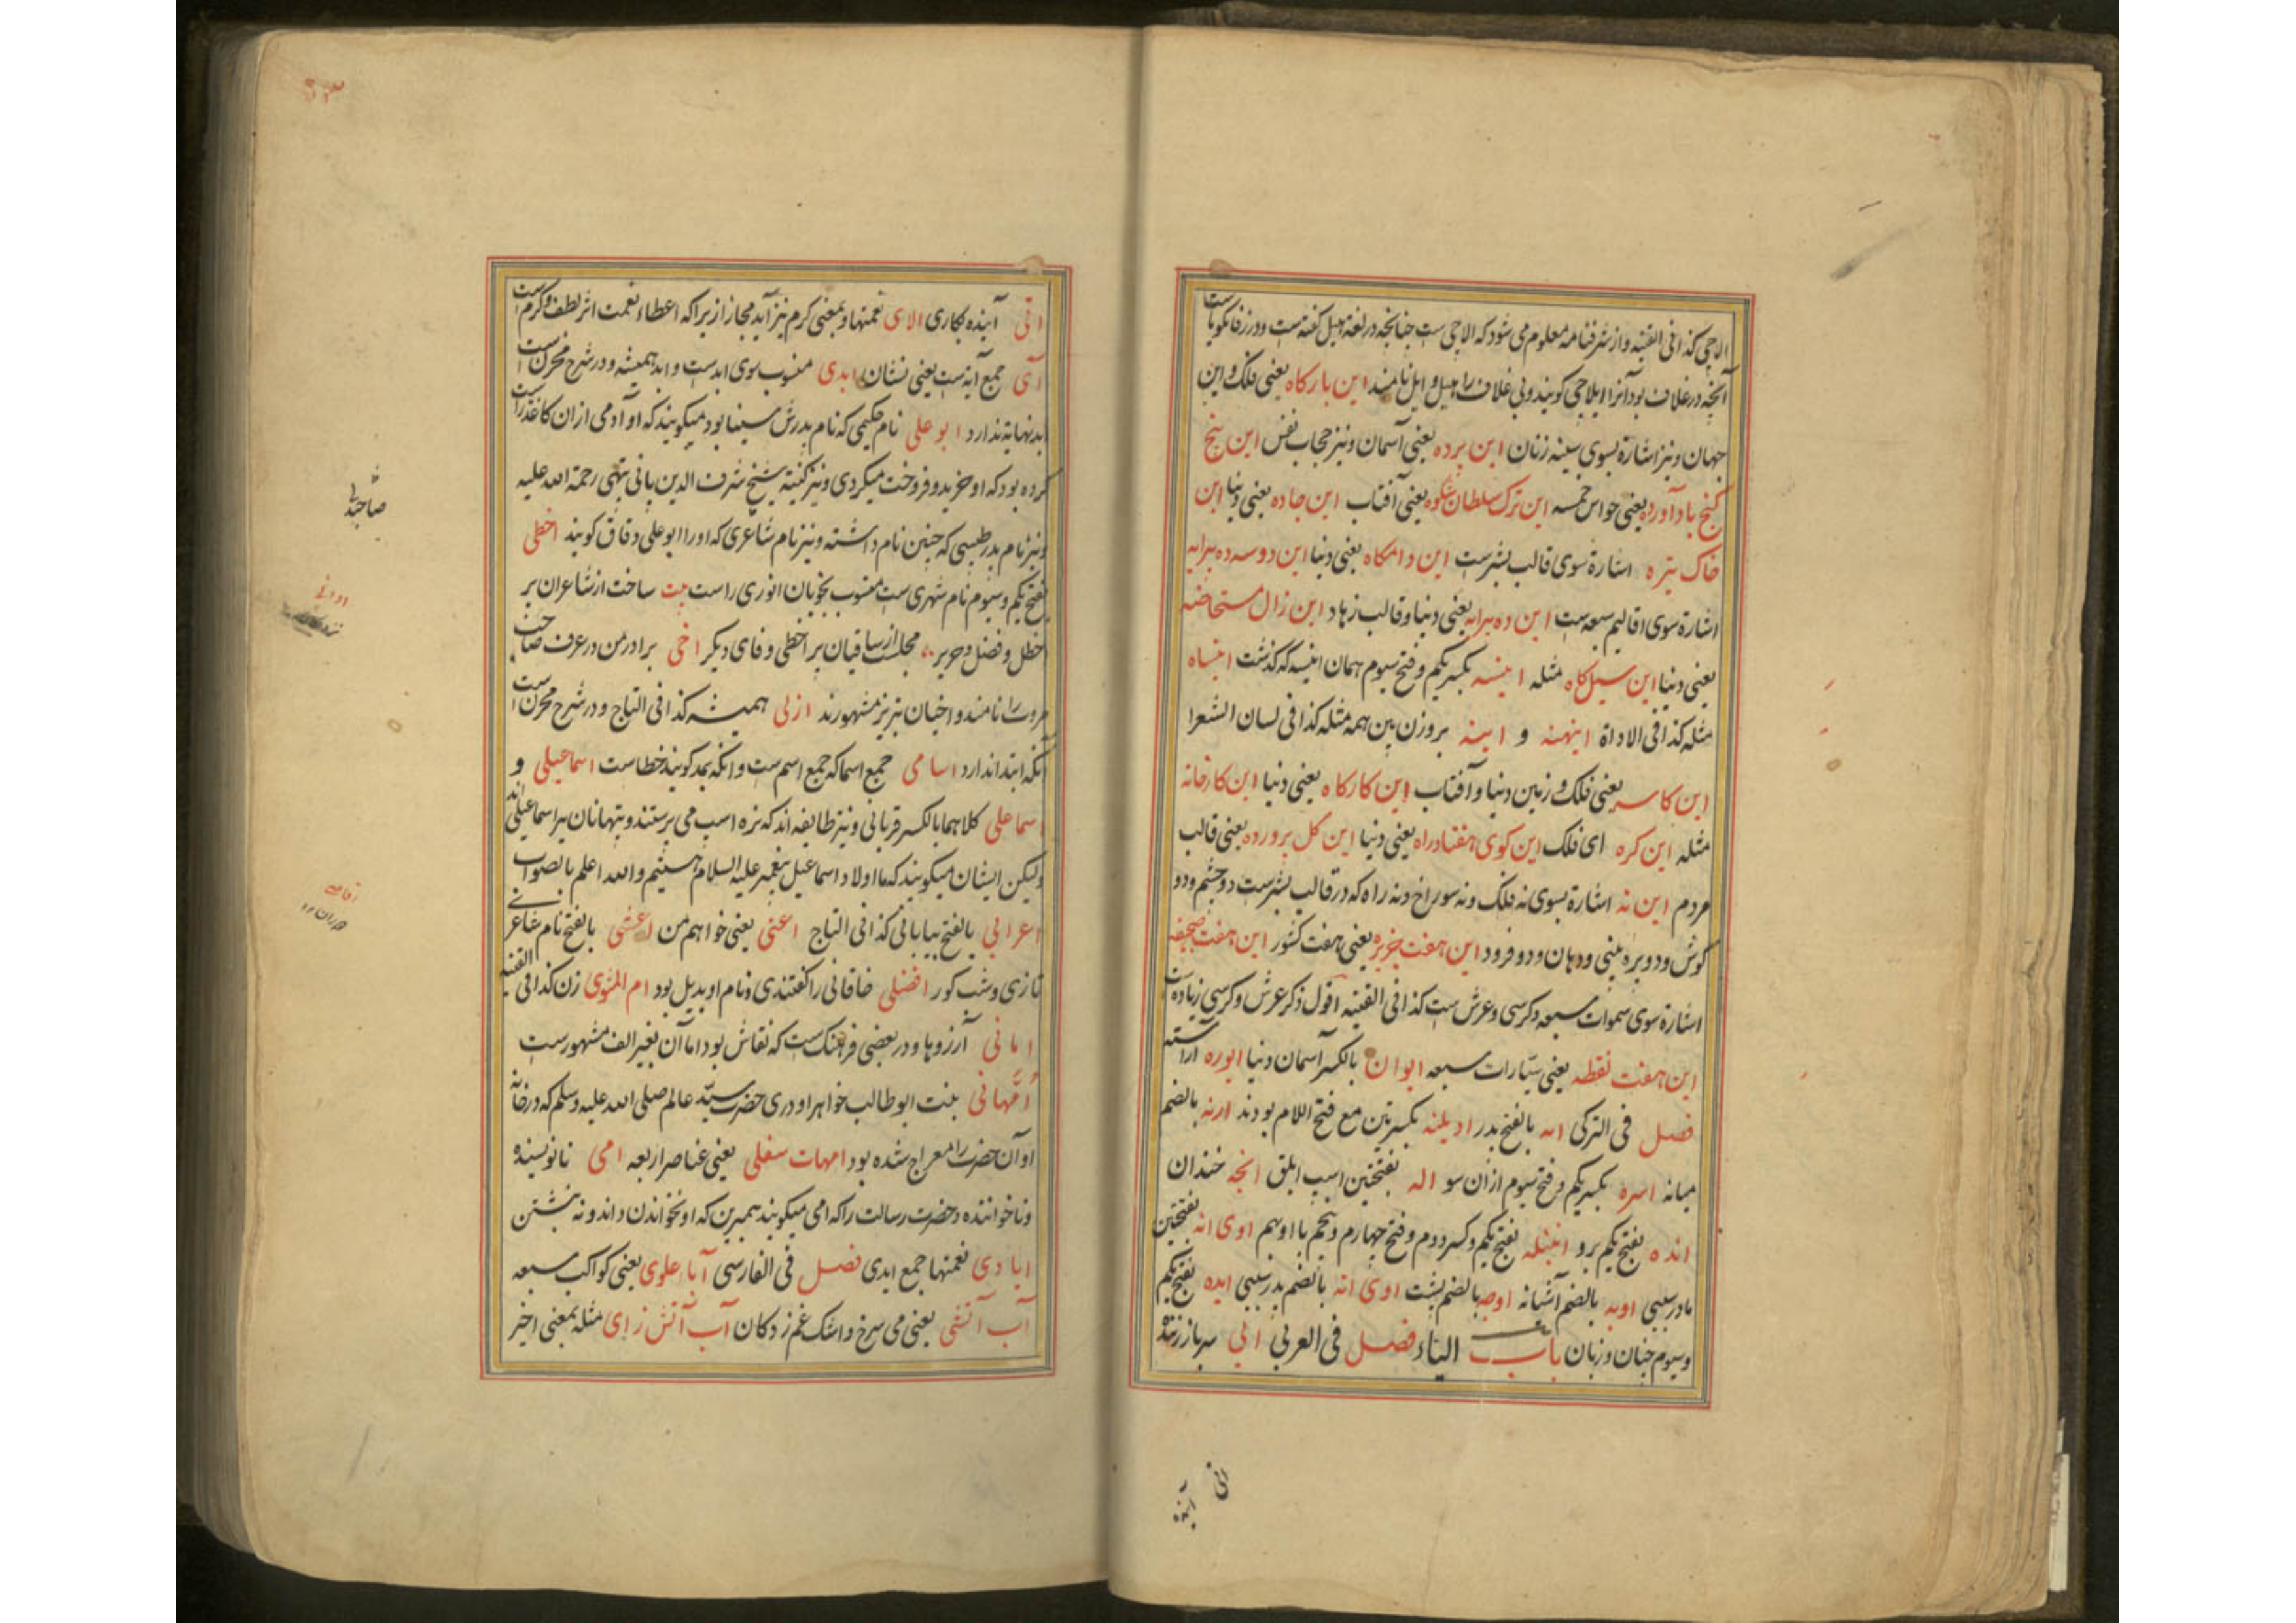 الاچی کذا فی القنیه و از شرفنامه معلوم می شود که الاچی ست چنانچه در لغة هیل گفته است و در زفانگویاست
آنچه در غلاف بود آنرا ایلاچی گویند و بی غلاف را هیل و ایل نامند این بارگاه یعنی فلک و این
جهان و نیز اشارة بسوی سینه زنان این پرده یعنی آسمان و نیز حجاب نفس این پنج
گنج باد آورده یعنی حواس خمسه این ترک سلطان شکوه یعنی آفتاب این جاده یعنی دنیا این
خاک تیره اشارة سوی قالب بشرست این دامگاه یعنی دنیا این دو سه ده پرایه
اشارة سوی اقالیم سبعه ست این ده پرایه یعنی دنیا و قالب زهاد این زال مستحاضه
یعنی دنیا این سیل گاه مثله اینسه بکسر یکم و فتح سیوم همان اینسه که گذشت اینساه
مثله کذا فی الاداة اینهینه و اینه بروزن بن همه مثله کذا فی لسان الشعرا
این کاسه یعنی فلک و زمین دنیا و آفتاب این کارگاه یعنی دنیا این کارخانه
مثله این کره ای فلک این کوی هفتاد راه یعنی دنیا این گل پرورده یعنی قالب
مردم این نه اشارة بسوی نه فلک و نه سوراخ و نه راه که در قالب بشرست دو چشم و دو
گوش و دو پره بینی و دهان و دو فرود این هفت جزیره یعنی هفت کشور این هفت صحیفه
اشارة سوی سموات سبعه و کرسی و عرش ست کذا فی القنیه اقول ذکر عرش و کرسی زیاده ست
این هفت نقطه یعنی سیارات سبعه ایوان بالکسر آسمان دنیا ایوره آراسته
فصل فی الترکی اته بالفتح پدر ادیلنه بکسرتین مع فتح اللام بودند ارنه بالضم
میانه اسره بکسر یکم و فتح سیوم ازان سو اله بفتحتین اسپ ابلق انجه خندان
انده بفتح یکم برو اینله بفتح یکم و کسر دوم و فتح چهارم و پنجم با او بهم اوی انه بفتحتین
مادر سببی اوبه بالضم آشیانه اوجه بالضم پشت اوی اته بالضم پدر سببی ایده بفتح یکم
و سیوم چنان و زبان باب الیاء فصل فی العربی ابی سرباز زننده
اتی آینده
اتی آینده بکاری الای نعمتها و بمعنی کرم نیز آید مجازا زیراکه اعطاء نعمت اثر لطف و کرم ست
آی جمع آیه ست یعنی نشان ابدی منسوب سوی ابدست و ابد همیشه و در شرح مخزن ست
ابد نهایة ندارد ابو علی نام حکیمی که نام پدرش سینا بود میگویند که او آدمی ازان کاغذ راست
کرده بود که او خرید و فروخت میکردی و نیز کنیة شیخ شرف الدین پانی پتهی رحمة الله علیه
و نیز نام پدر طبیبی که چنین نام داشته و نیز نام شاعری که او را ابو علی دقاق گویند اخطلی
بفتح یکم و سیوم نام شهری ست منسوب بخوبان انوری راست بیت ساخت از شاعران پر
اخطل و فضل و جریر مجلست از ساقیان پر اخطی و فای دیگر اخی برادر من در عرف صاحب
مروت را نامند و اخیان تبریز مشهورند ازلی همیشه کذا فی التاج و در شرح مخزن ست
آنکه ابتدا ندارد اسامی جمع اسما که جمع اسم ست و آنکه بمد گویند خطاست اسماعیلی و
سماعلی کلاهما بالکسر قربانی و نیز طایفه اند که نره اسب می پرستند و پتهانان سراسماعیلی اند
ولیکن ایشان میگویند که ما اولاد اسماعیل پیغمبر علیه السلام هستیم والله اعلم بالصواب
اعرابی بالفتح بیابانی کذا فی التاج اعنی یعنی خواهم من اعشی بالفتح نام شاعر
تازی و شب کور افضلی خاقانی را گفتندی و نام او بدیل بود ام المثوی زن کذا فی القنیه
امانی آرزوها و در بعضی فرهنگ ست که نقاش بود اما آن بغیر الف مشهورست
اُمّهانی بنت ابو طالب خواهر اودری حضرت سید عالم صلی الله علیه وسلم که در خانه
او آن حضرت را معراج شده بود امهات سفلی یعنی عناصر اربعه امی نانویسنده
و ناخواننده و حضرت رسالت را که امی میگویند همبرین که او نخواندن داند و نه نبشتن
ایادی نعمتها جمع ایدی فصل فی الفارسی آباء علوی یعنی کواکب سبعه
آب آتشی یعنی می سرخ و اشک غم زدگان آب آتش زای مثله بمعنی اخیر